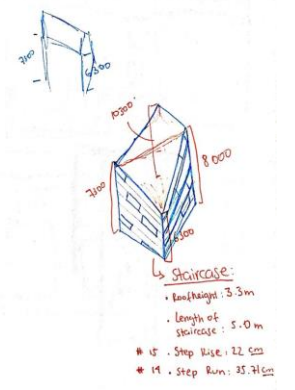 7100
6300
10300
8000
7300
6300
Staircase:
• Roofheight : 3.3 m
• Length of
staircase : 5.0 m
# 15 • Step Rise : 22 cm
# 14 • Step Run : 35.71 cm